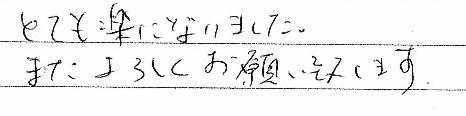 とても楽になりました。
またよろしくお願い致します。